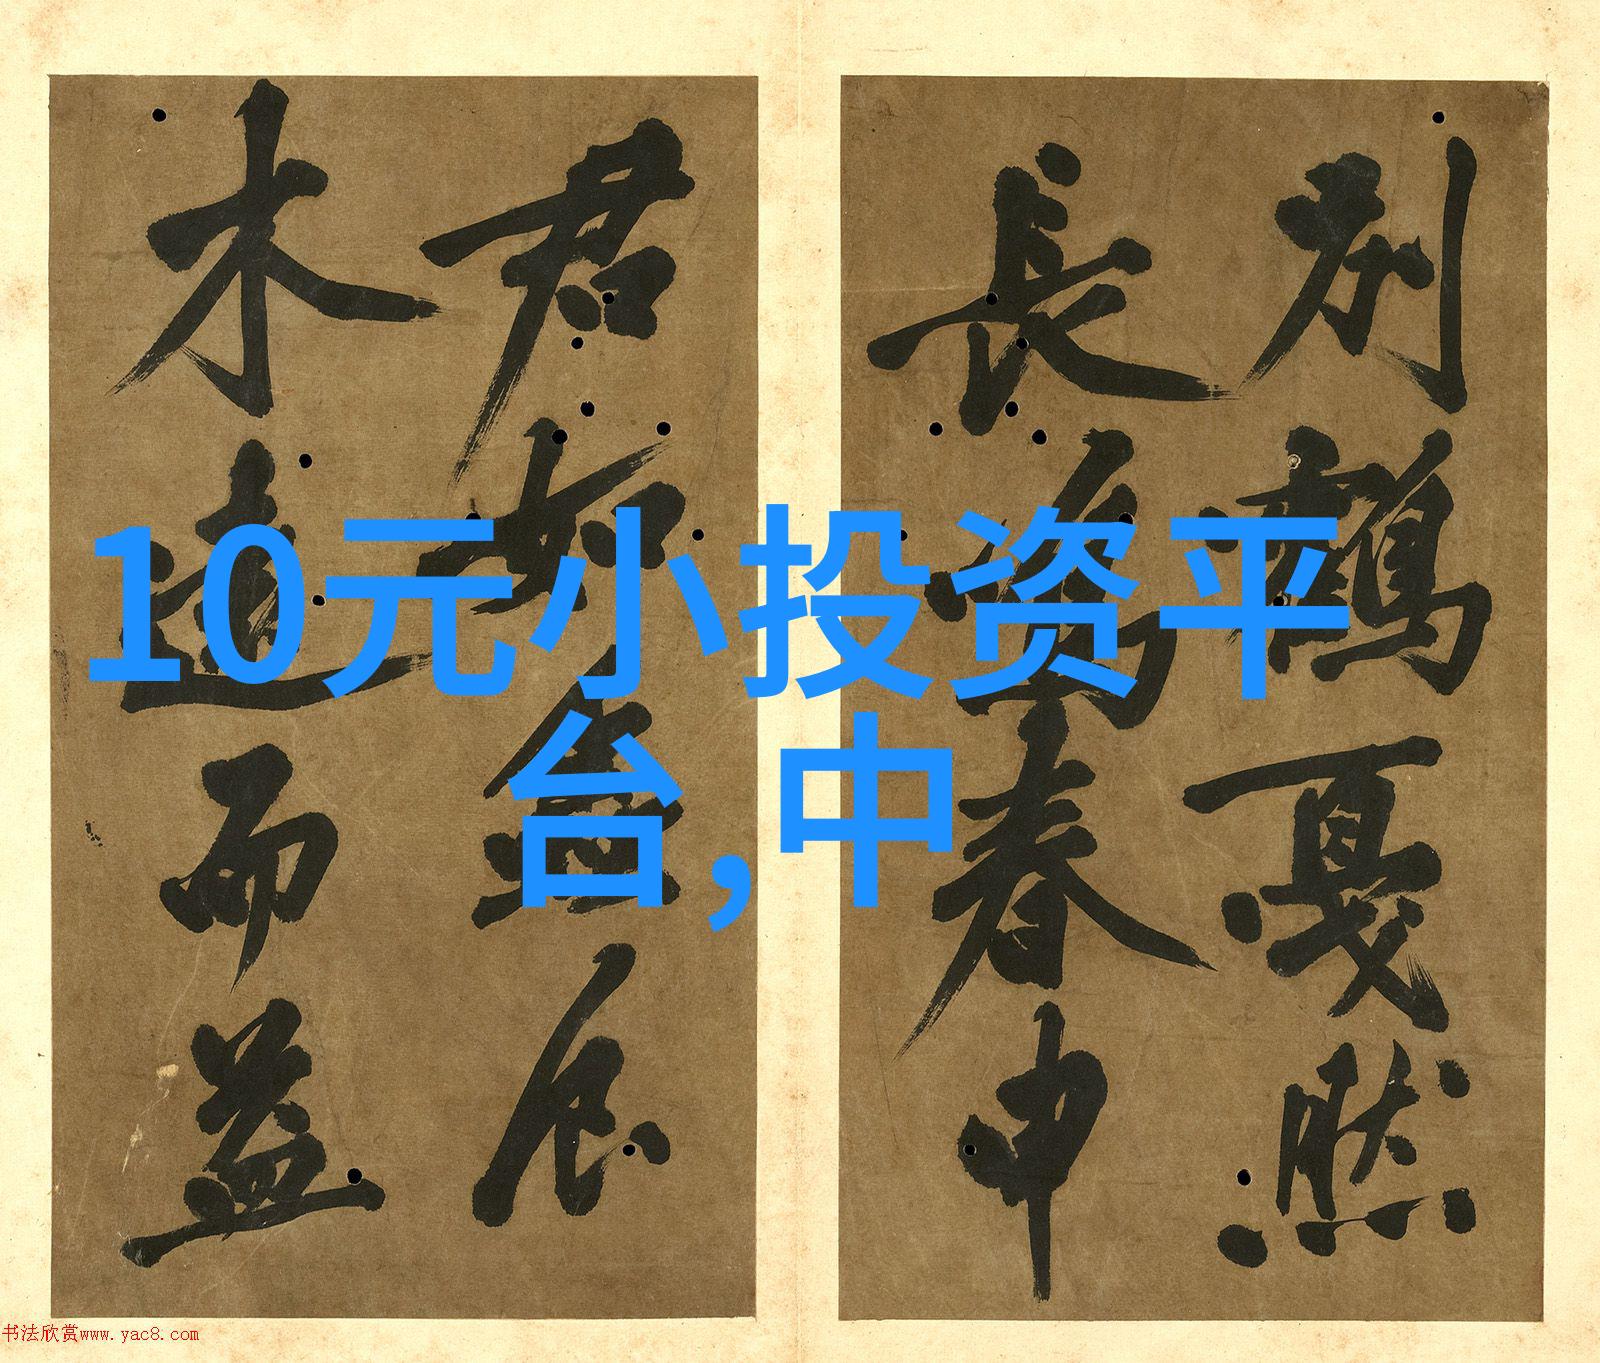 別鶴戛然
長鳴春申
君如
木遠而益
10元小投资平
台,中
书法欣赏www.yac8.com